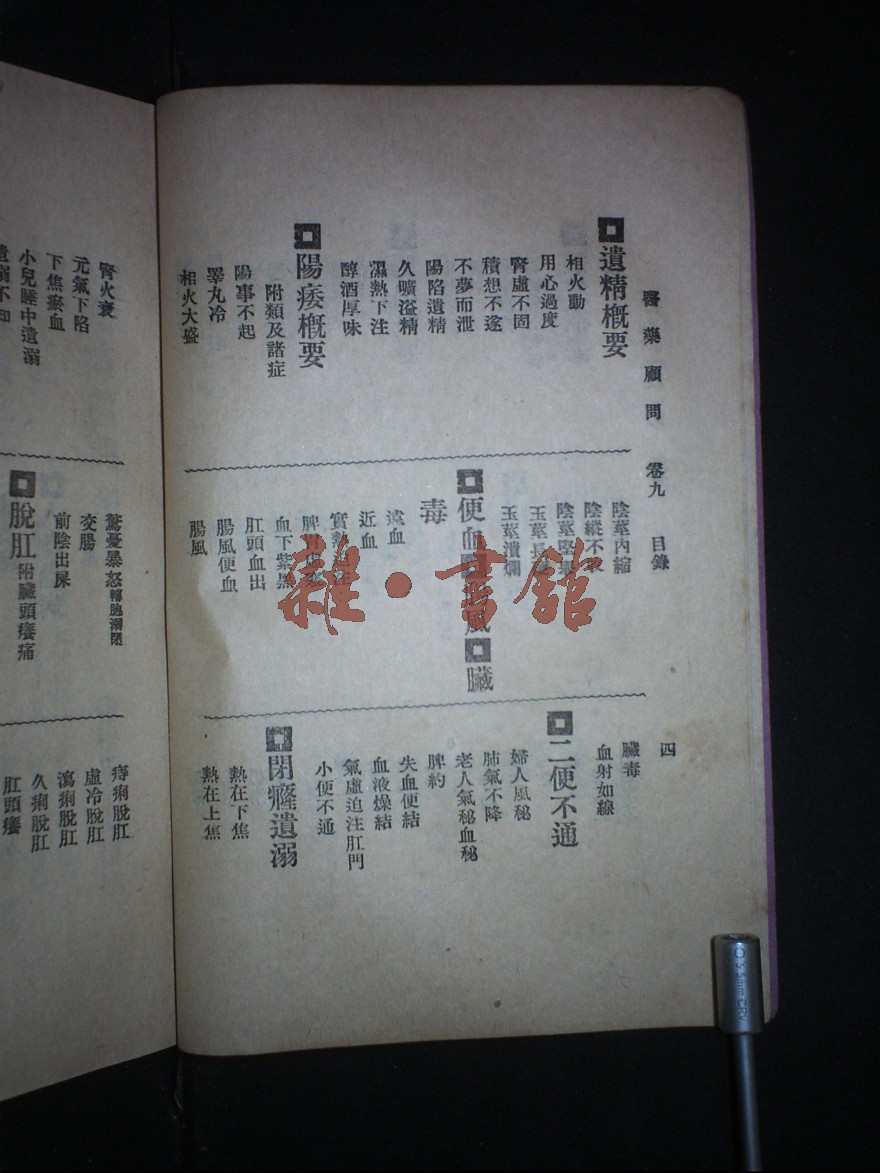 醫藥顧問 卷九 目錄
四
遺精概要
相火動
用心過度
腎虛不固
積想不遂
不夢而泄
陽陷遺精
久曠溢精
濕熱下注
醇酒厚味
陽痿概要
附類及諸症
陽事不起
睪丸冷
相火大盛
陰莖內縮
陰縱不收
陰莖堅
玉莖長
玉莖潰爛
便血 風 臟
毒
遠血
近血
實熱
脾胃虛
血下紫黑
肛頭血出
腸風便血
腸風
臟毒
血射如線
二便不通
婦人風秘
肺氣不降
老人氣秘血秘
脾約
失血便結
血液燥結
氣虛迫注肛門
小便不通
閉癃遺溺
熱在下焦
熱在上焦
腎火衰
元氣下陷
下焦瘀血
小兒睡中遺溺
遺溺不知
驚憂暴怒轉胞溺閉
交腸
前陰出屎
脫肛附臟頭癢痛
痔痢脫肛
虛冷脫肛
瀉痢脫肛
久痢脫肛
肛頭癢
雜·書館